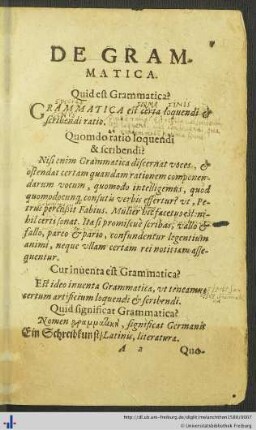 DE GRAM-
MATICA.
Quid est Grammatica?
GRAMMATICA est certa loquendi &
scribendi ratio.
Quomodo ratio loquendi
& scribendi?
Nisi enim Grammatica discernat voces, &
ostendat certam quandam rationem componen-
darum vocum, quomodo intelligemus, quod
quomodocunq; confusis verbis effertur? vt, Pe-
trus percussit Fabius. Mulier hic facetus est: ni-
hil certi sonat. Ita si promiscuè scribas, vallo &
fallo, parco & pario, confundentur legentium
animi, neque vllam certam rei notitiam asse-
quentur.
Cur inuenta est Grammatica?
Est ideo inuenta Grammatica, vt teneamus
certum artificium loquendi & scribendi.
Quid significat Grammatica?
Nomen γραμματικὴ, significat Germanis
Ein Schreibkunst/ Latinis, literatura.
A 2 Quo-
Universitätsbibliothek Freiburg